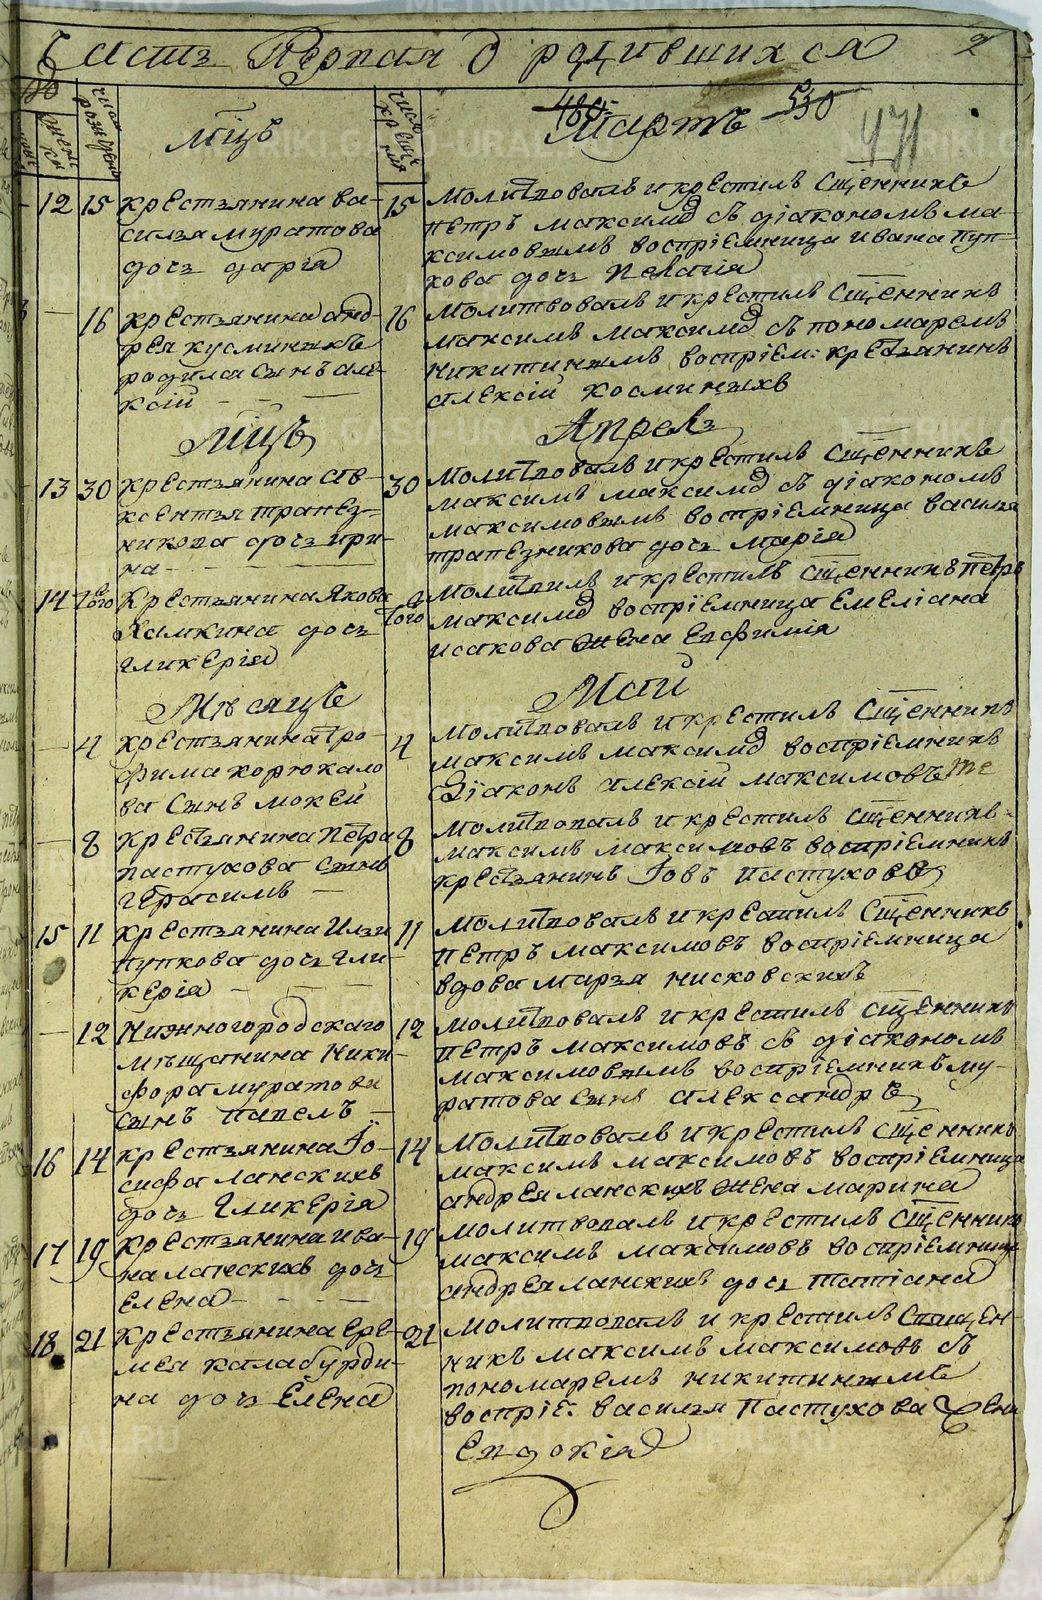 Часть Первая О родившихся 2
число рожденiя
число крещенiя
480 530
Мцъ Мартъ 471
12 15 крестьянина ва-
силья муратова
дочь дарiя
15 Молитвовалъ и крестилъ Сщенникъ
петръ максимо съ дiакономъ ма-
ксимовымъ воспрiемница ивана пуп-
кова дочь Пелагiя
16 крестьянина анд-
рея кусминыхъ
родился сынъ але-
ксiй
16 Молитвовалъ и крестилъ Сщенникъ
максимъ максимо съ пономаремъ
никитинымъ воспрiем: крестьянинъ
алексiй косминыхъ
Мцъ Апрель
13 30 крестьянина ав-
ксентья трапез-
никова дочь ири-
на
30 Молитвовалъ и крестилъ Сщенникъ
максимъ максимо съ дiакономъ
максимовымъ воспрiемница василья
трапезникова дочь марiя
14 того Крестьянина Якова
Халкина дочь
гликерiя
того Молитвилъ и крестилъ сщенникъ петръ
максимо воспрiемница Емелiана
исакова жена Евфимiя
Мѣсяцъ Маiй
4 крестьянина тро-
фима корюкало
ва Сынъ мокей
4 Молитвовалъ и крестилъ Сщенникъ
максимъ максимо воспрiемникъ
дiаконъ алексiй максимовъ же
8 крестьянина петра
пастухова сынъ
герасимъ
8 Молитвовалъ и крестилъ сщенникъ
максимъ максимовъ воспрiемникъ
крестьянинъ Iовъ пастуховъ
15 11 крестьянина Ильи
пупкова дочь гли-
керiя
11 Молитвовалъ и крестилъ Сщенникъ
петръ максимовъ воспрiемница
вдова марья нисковскихъ
12 Нижногородскаго
мѣщанина Ники-
фора муратова
сынъ павелъ
12 Молитвовалъ и крестилъ сщенникъ
петръ максимовъ съ дiакономъ
максимовымъ воспрiемникъ му-
ратова сынъ александръ
16 14 крестьянина Iо-
сифа ланскихъ
дочь Гликерiя
14 Молитвовалъ и крестилъ сщенникъ
максимъ максимовъ воспрiемница
андрея ланскихъ жена марина
17 19 крестьянина ива-
на ланскихъ дочь
елена
19 Молитвовалъ и крестилъ Сщенникъ
максимъ максимовъ воспрiемница
андрея ланскихъ дочь татiана
18 21 крестьянина ере-
мея калабурди-
на дочь Елена
21 Молитвовалъ и крестилъ Священ-
никъ максимъ максимовъ съ
пономаремъ никитинымъ
воспрiе: василья Пастухова жена
Евдокiя